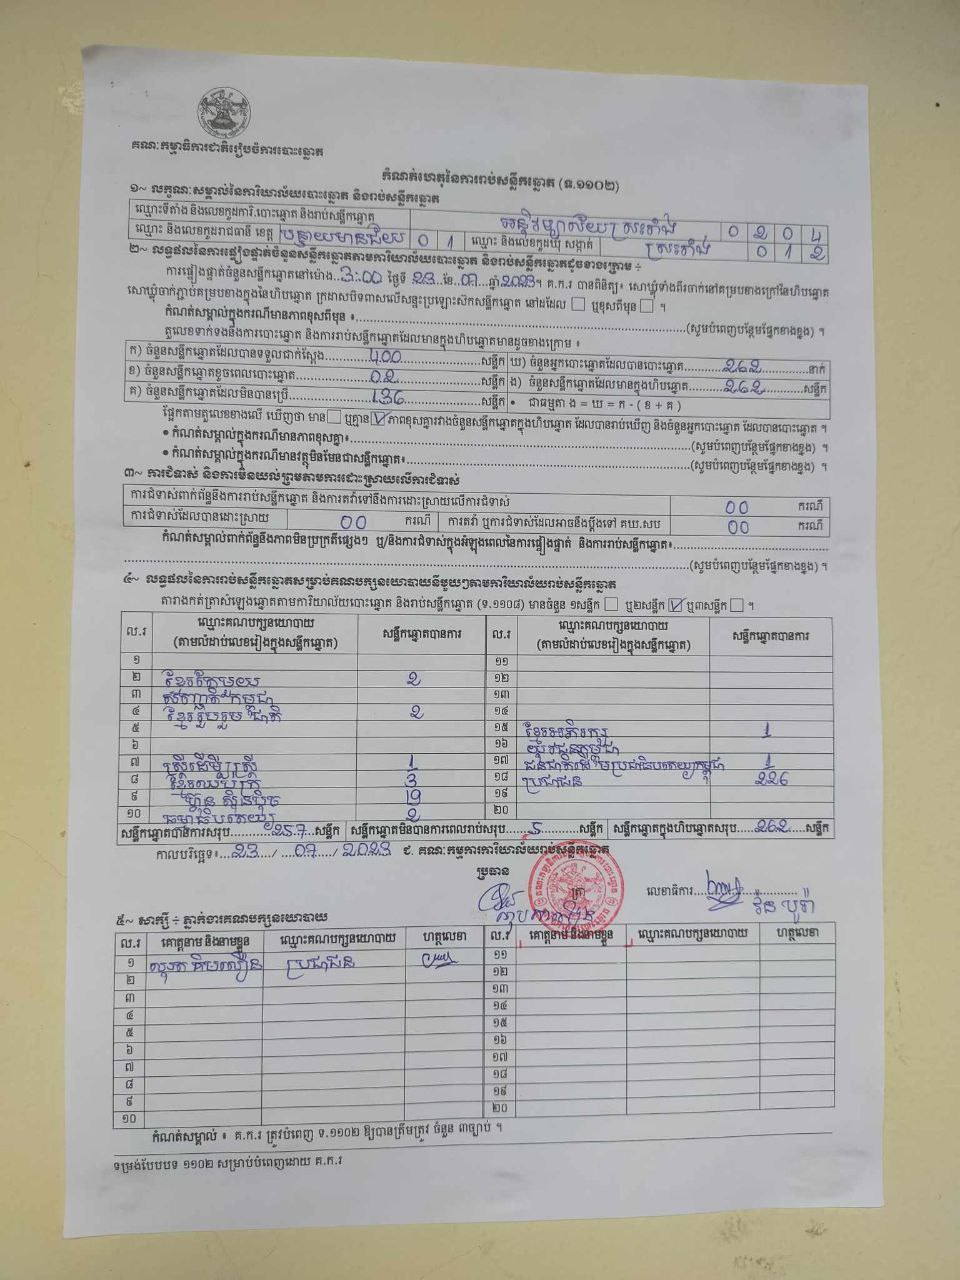 គណៈកម្មាធិការជាតិរៀបចំការបោះឆ្នោត
កំណត់ហេតុនៃការរាប់សន្លឹកឆ្នោត (ទ.១១០២)
១~ លក្ខណៈសម្គាល់នៃការិយាល័យបោះឆ្នោត និងរាប់សន្លឹកឆ្នោត
ឈ្មោះទីតាំង និងលេខកូដការិ.បោះឆ្នោត និងរាប់សន្លឹកឆ្នោត អនុវិទ្យាល័យ ស្រះកាំង 0 2 0 4
ឈ្មោះ និងលេខកូដរាជធានី ខេត្ត បន្ទាយមានជ័យ 0 1 ឈ្មោះ និងលេខកូដឃុំ សង្កាត់ ស្រះកាំង 0 1 2
២~ លទ្ធផលនៃការផ្ទៀងផ្ទាត់ចំនួនសន្លឹកឆ្នោតតាមការិយាល័យបោះឆ្នោត និងរាប់សន្លឹកឆ្នោតដូចខាងក្រោម ÷
ការផ្ទៀងផ្ទាត់ចំនួនសន្លឹកឆ្នោតនៅម៉ោង 3:00 ថ្ងៃទី 23 ខែ 07 ឆ្នាំ 2023។ គ.ក.រ បានពិនិត្យ៖ សោឃ្លុំទាំងពីរចាក់នៅគម្របខាងក្រៅនៃហិបឆ្នោត
សោឃ្លុំចាក់ភ្ជាប់គម្របខាងក្នុងនៃហិបឆ្នោត ក្រដាសបិទពាសលើសន្ទះប្រឡោះស៊ិកសន្លឹកឆ្នោត នៅដដែល ☐ ឬខុសពីមុន ☐ ។
កំណត់សម្គាល់ក្នុងករណីមានភាពខុសពីមុន ៖ (សូមបំពេញបន្ថែមផ្នែកខាងខ្នង) ។
តួលេខទាក់ទងនឹងការបោះឆ្នោត និងការរាប់សន្លឹកឆ្នោតដែលមានក្នុងហិបឆ្នោតមានដូចខាងក្រោម ៖
ក) ចំនួនសន្លឹកឆ្នោតដែលបានទទួលជាក់ស្តែង 400 សន្លឹក ឃ) ចំនួនអ្នកបោះឆ្នោតដែលបានបោះឆ្នោត 262 នាក់
ខ) ចំនួនសន្លឹកឆ្នោតខូចពេលបោះឆ្នោត 02 សន្លឹក ង) ចំនួនសន្លឹកឆ្នោតដែលមានក្នុងហិបឆ្នោត 262 សន្លឹក
គ) ចំនួនសន្លឹកឆ្នោតដែលមិនបានប្រើ 136 សន្លឹក • ជាធម្មតា ង = ឃ = ក - ( ខ + គ )
ផ្អែកតាមតួលេខខាងលើ ឃើញថា មាន ☐ ឬគ្មាន ☑ ភាពខុសគ្នារវាងចំនួនសន្លឹកឆ្នោតក្នុងហិបឆ្នោត ដែលបានរាប់ឃើញ និងចំនួនអ្នកបោះឆ្នោត ដែលបានបោះឆ្នោត ។
• កំណត់សម្គាល់ក្នុងករណីមានភាពខុសគ្នា៖ (សូមបំពេញបន្ថែមផ្នែកខាងខ្នង) ។
• កំណត់សម្គាល់ក្នុងករណីមានវត្ថុមិនមែនជាសន្លឹកឆ្នោត៖ (សូមបំពេញបន្ថែមផ្នែកខាងខ្នង) ។
៣~ ការជំទាស់ និងការមិនយល់ព្រមតាមការដោះស្រាយលើការជំទាស់
ការជំទាស់ពាក់ព័ន្ធនឹងការរាប់សន្លឹកឆ្នោត និងការតវ៉ាទៅនឹងការដោះស្រាយលើការជំទាស់ 00 ករណី
ការជំទាស់ដែលបានដោះស្រាយ 00 ករណី ការតវ៉ា ឬការជំទាស់ដែលអាចនឹងប្តឹងទៅ គឃ.សប 00 ករណី
កំណត់សម្គាល់ពាក់ព័ន្ធនឹងភាពមិនប្រក្រតីផ្សេងៗ ឬ/និងការជំទាស់ក្នុងអំឡុងពេលនៃការផ្ទៀងផ្ទាត់ និងការរាប់សន្លឹកឆ្នោត៖
(សូមបំពេញបន្ថែមផ្នែកខាងខ្នង) ។
៤~ លទ្ធផលនៃការរាប់សន្លឹកឆ្នោតសម្រាប់គណបក្សនយោបាយនីមួយៗតាមការិយាល័យរាប់សន្លឹកឆ្នោត
តារាងកត់ត្រាសំឡេងឆ្នោតតាមការិយាល័យបោះឆ្នោត និងរាប់សន្លឹកឆ្នោត (ទ.១១០៨) មានចំនួន ១សន្លឹក ☐ ឬ២សន្លឹក ☑ ឬ៣សន្លឹក ☐ ។
ល.រ ឈ្មោះគណបក្សនយោបាយ (តាមលំដាប់លេខរៀងក្នុងសន្លឹកឆ្នោត) សន្លឹកឆ្នោតបានការ ល.រ ឈ្មោះគណបក្សនយោបាយ (តាមលំដាប់លេខរៀងក្នុងសន្លឹកឆ្នោត) សន្លឹកឆ្នោតបានការ
១ ១១
២ ខ្មែរ 2 ១២
៣ កម្ពុជា ១៣
៤ ខ្មែររួបរួម ជាតិ 2 ១៤
៥ ១៥ ខ្មែរអភិរក្ស 1
៦ ១៦ យុវជនកម្ពុជា
៧ ស្ត្រីដើម្បីស្ត្រី 1 ១៧ ជនជាតិដើមប្រជាធិបតេយ្យកម្ពុជា 1
៨ ខ្មែរឈប់ក្រ 3 ១៨ ប្រជាជន 226
៩ ហ្វ៊ុនស៊ិនប៉ិច 19 ១៩
១០ ធម្មាធិបតេយ្យ 2 ២០
សន្លឹកឆ្នោតបានការសរុប 257 សន្លឹក សន្លឹកឆ្នោតមិនបានការពេលរាប់សរុប 5 សន្លឹក សន្លឹកឆ្នោតក្នុងហិបឆ្នោតសរុប 262 សន្លឹក
កាលបរិច្ឆេទ៖ 23 / 07 / 2023 ជ. គណៈកម្មការការិយាល័យរាប់សន្លឹកឆ្នោត
ប្រធាន
ត្រា
លេខាធិការ
វ៉ន បូរ៉ា
៥~ សាក្សី ÷ ភ្នាក់ងារគណបក្សនយោបាយ
ល.រ គោត្តនាម និងនាមខ្លួន ឈ្មោះគណបក្សនយោបាយ ហត្ថលេខា ល.រ គោត្តនាម និងនាមខ្លួន ឈ្មោះគណបក្សនយោបាយ ហត្ថលេខា
១ ប្រជាជន ១១
២ ១២
៣ ១៣
៤ ១៤
៥ ១៥
៦ ១៦
៧ ១៧
៨ ១៨
៩ ១៩
១០ ២០
កំណត់សម្គាល់ ៖ គ.ក.រ ត្រូវបំពេញ ទ.១១០២ ឱ្យបានត្រឹមត្រូវ ចំនួន ៣ច្បាប់ ។
ទម្រង់បែបបទ ១១០២ សម្រាប់បំពេញដោយ គ.ក.រ